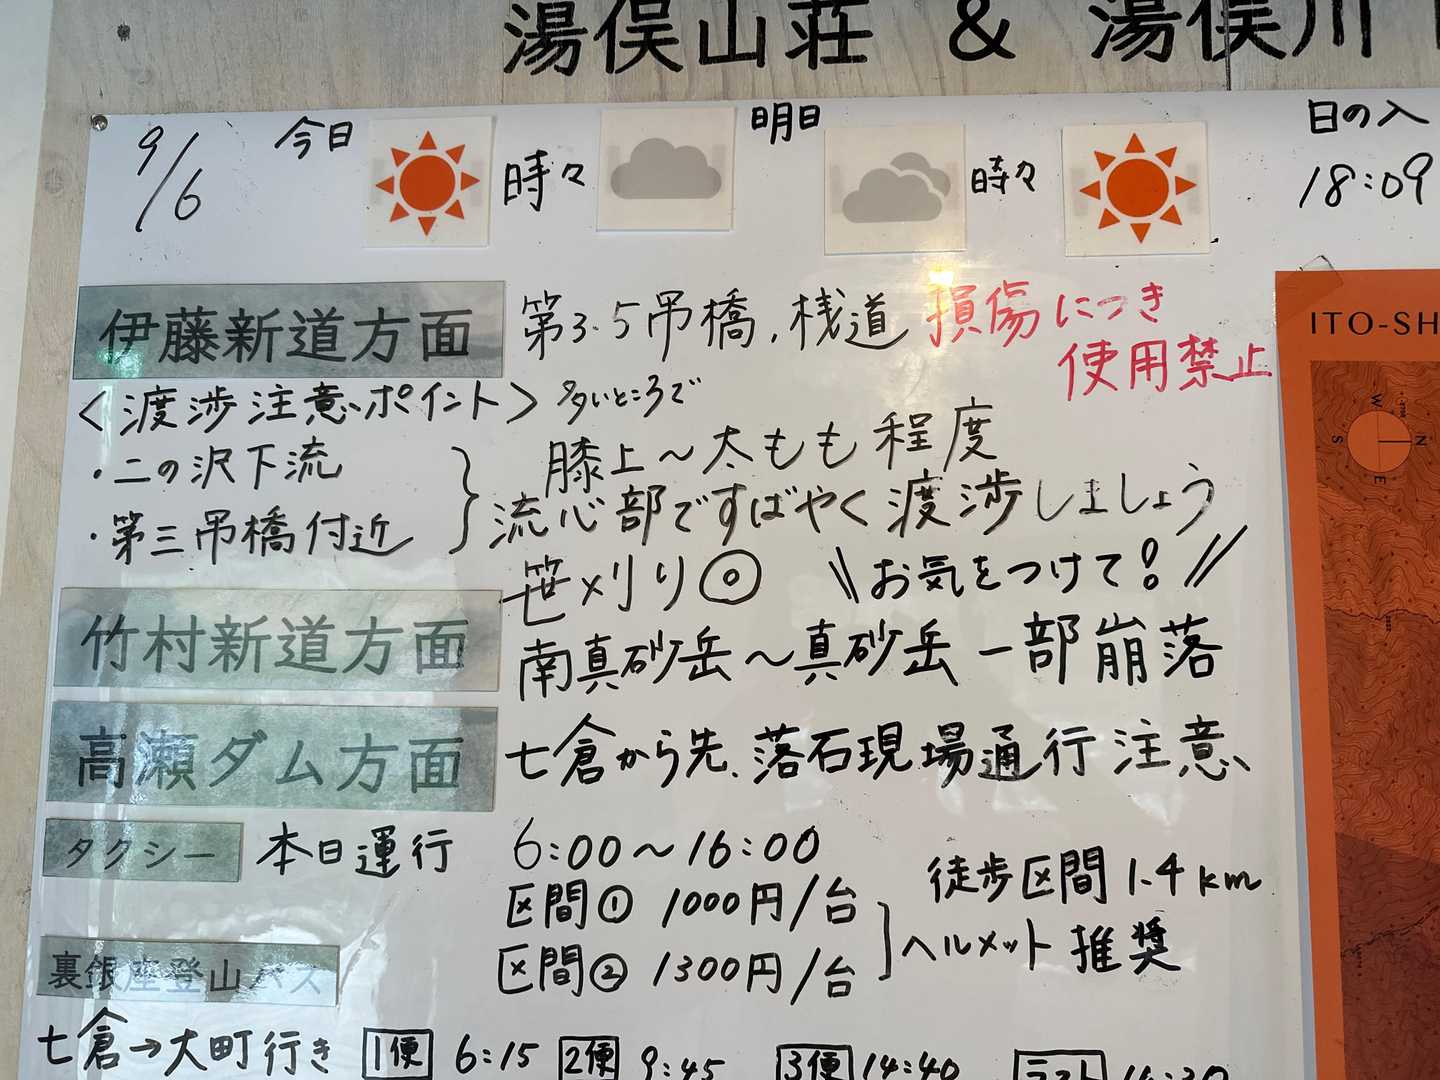 湯俣山荘 & 湯俣川
9/6 今日 時々 明日 時々 日の入
18:09
伊藤新道方面 第3.5吊橋、桟道 損傷につき
使用禁止
<渡渉注意ポイント> 多いところで
・二の沢下流 膝上～太もも程度
・第三吊橋付近 流心部ですばやく渡渉しましょう
笹刈り◎ \\お気をつけて!//
竹村新道方面 南真砂岳～真砂岳一部崩落
高瀬ダム方面 七倉から先、落石現場通行注意
タクシー 本日運行 6:00～16:00
区間① 1000円/台 徒歩区間1.4km
区間② 1300円/台 ヘルメット推奨
裏銀座登山バス
七倉→大町行き 1便 6:15 2便 9:45 3便 14:40
ITO-SH
W
N
S
E